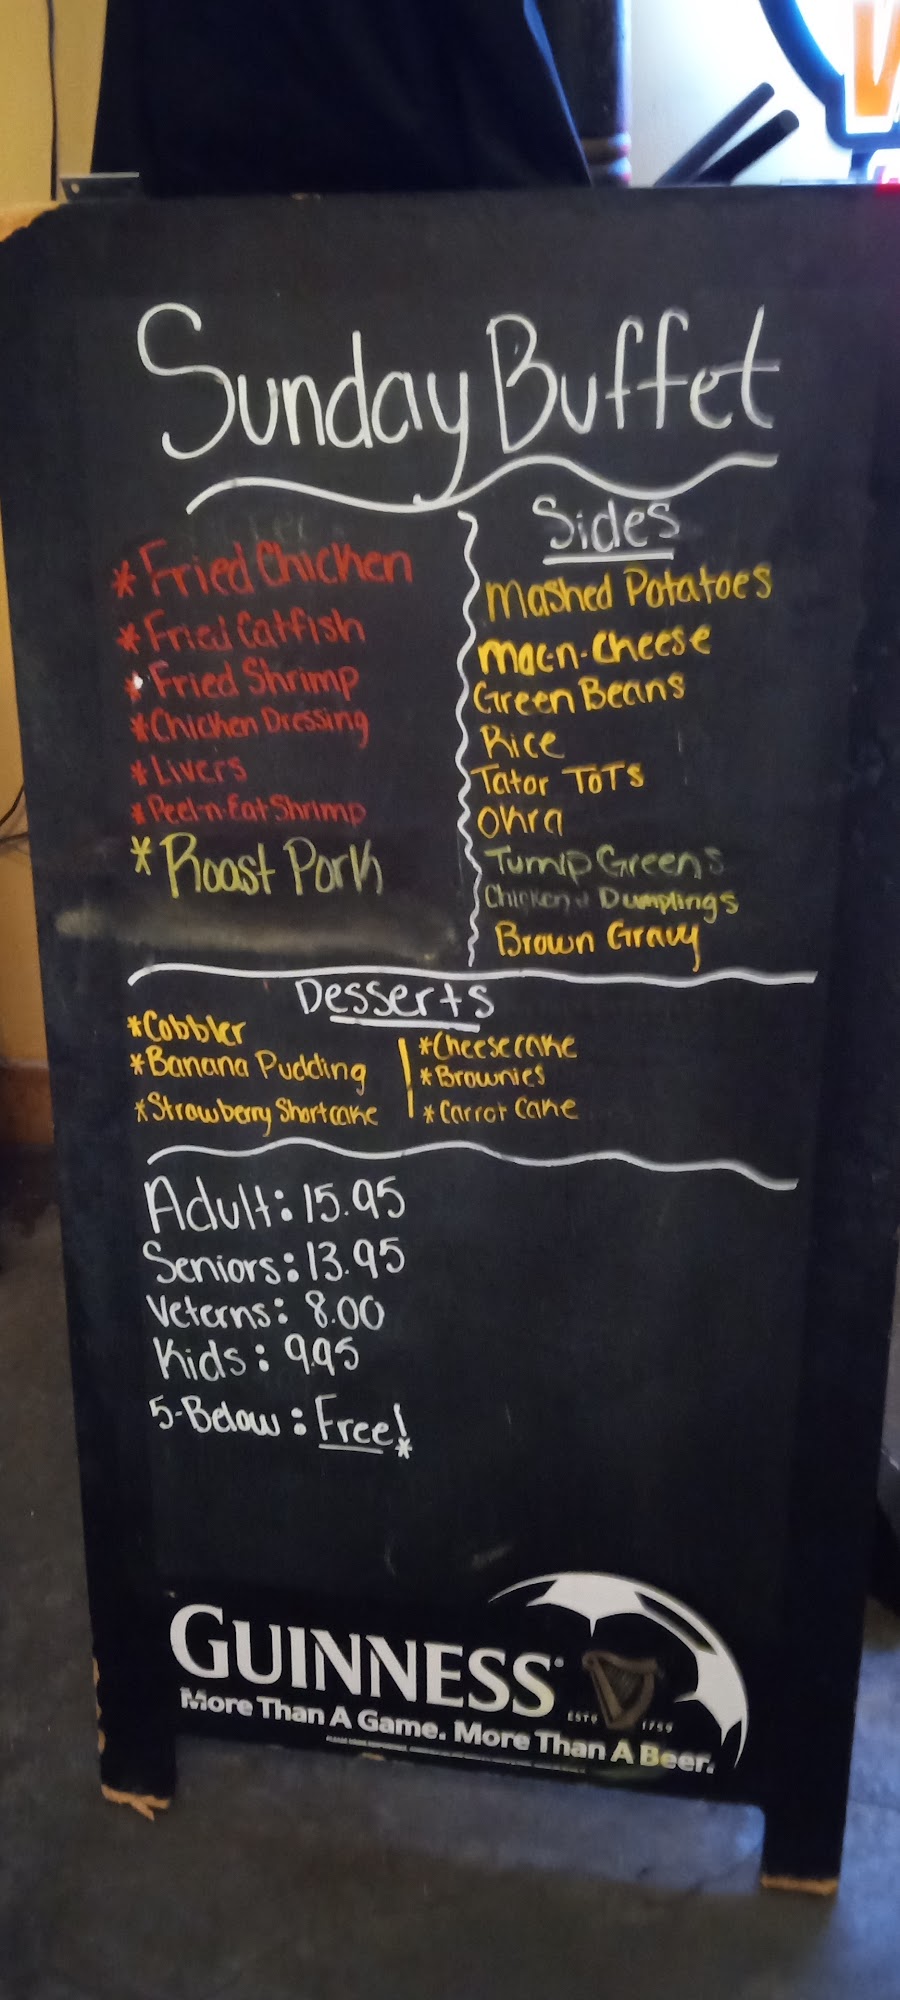 Sunday Buffet
*Fried Chicken
*Fried Catfish
*Fried Shrimp
*Chicken Dressing
*Livers
*Peel-n-Eat Shrimp
*Roast Pork
Sides
Mashed Potatoes
Mac-n-Cheese
Green Beans
Rice
Tator Tots
Okra
Turnip Greens
Chicken & Dumplings
Brown Gravy
Desserts
*Cobbler
*Banana Pudding
*Strawberry Shortcake
*Cheesecake
*Brownies
*Carrot Cake
Adult: 15.95
Seniors: 13.95
Veterns: 8.00
Kids: 9.95
5-Below: Free!*
GUINNESS
ESTD 1759
More Than A Game. More Than A Beer.